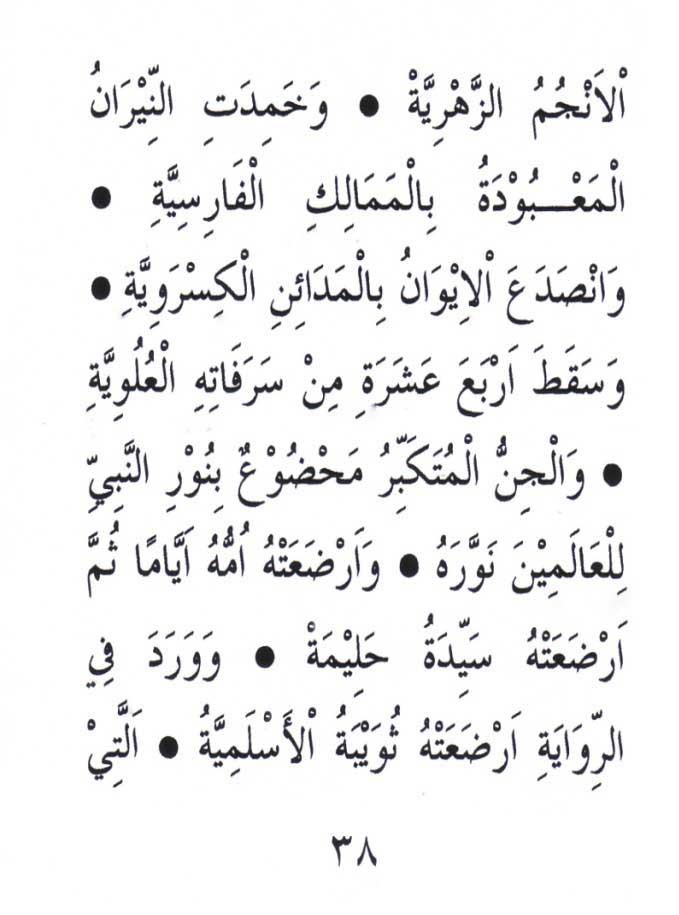 اْلاَنْجُمُ الزَّهْرِيَّةْ ● وَخَمِدَتِ النِّيْرَانُ
الْمَعْـــبُوْدَةُ بِالْمَمَالِكِ الْفَارِسِيَّةِ ●
وَانْصَدَعَ اْلاِيْوَانُ بِالْمَدَائِنِ الْكِسْرَوِيَّةِ ●
وَسَقَطَ اَرْبَعَ عَشَرَةِ مِنْ سَرَفَاتِهِ الْعُلُوِيَّةِ
● وَالْجِنُّ الْمُتَكَبِّرُ مَحْضُوْعٌ بِنُوْرِ النَّبِيِّ
لِلْعَالَمِيْنَ نَوَّرَهُ ● وَاَرْضَعَتْهُ اُمُّهُ اَيَّامًا ثُمَّ
اَرْضَعَتْهُ سَيِّدَةُ حَلِيْمَةْ ● وَوَرَدَ فِي
الرِّوَايَةِ اَرْضَعَتْهُ ثُوَيْبَةُ اْلأَسْلَمِيَّةُ ● اَلَّتِيْ
٣٨